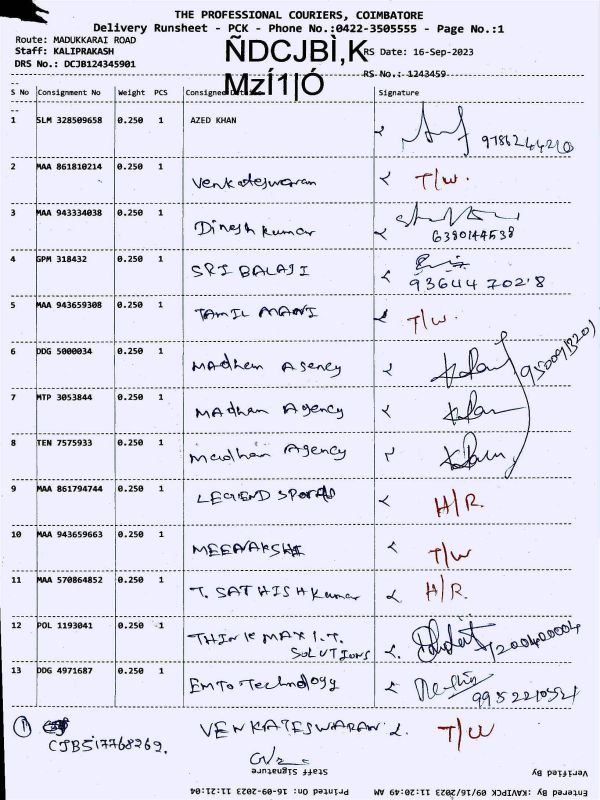 THE PROFESSIONAL COURIERS, COIMBATORE
Delivery Runsheet - PCK - Phone No.:0422-3505555 - Page No.:1
Route: MADUKKARAI ROAD
Staff: KALIPRAKASH ÑDCJBÌ,K RS Date: 16-Sep-2023
DRS No.: DCJB124345901 MzÍ1|Ó RS No.: 1243459
S No Consignment No Weight PCS Consignee Signature
1 SLM 328509658 0.250 1 AZED KHAN 9786244210
2 MAA 861810214 0.250 1 Venkateswaran T/W.
3 MAA 943334038 0.250 1 Dinesh kumar 6380144538
4 GPM 318432 0.250 1 SRI BALAJI 93644 70218
5 MAA 943659308 0.250 1 TAMIL MANI T/W.
6 DDG 5000034 0.250 1 Madhan Agency
7 MTP 3053844 0.250 1 Madhan Agency
8 TEN 7575933 0.250 1 Madhan Agency
9 MAA 861794744 0.250 1 LEGEND SPORTS H/R.
10 MAA 943659663 0.250 1 MEENAKSHI T/W
11 MAA 570864852 0.250 1 T. SATHISH Kumar H/R.
12 POL 1193041 0.250 1 THINK MAX I.T.
SOLUTIONS
13 DDG 4971687 0.250 1 EMTO Technology 9952210521
1 CJB517768269. VENKATESWARAN L. T/W
Staff Signature Verified By
Printed On: 16-09-2023 11:21:04 Entered By :KAVIPCK 09/16/2023 11:20:49 AM